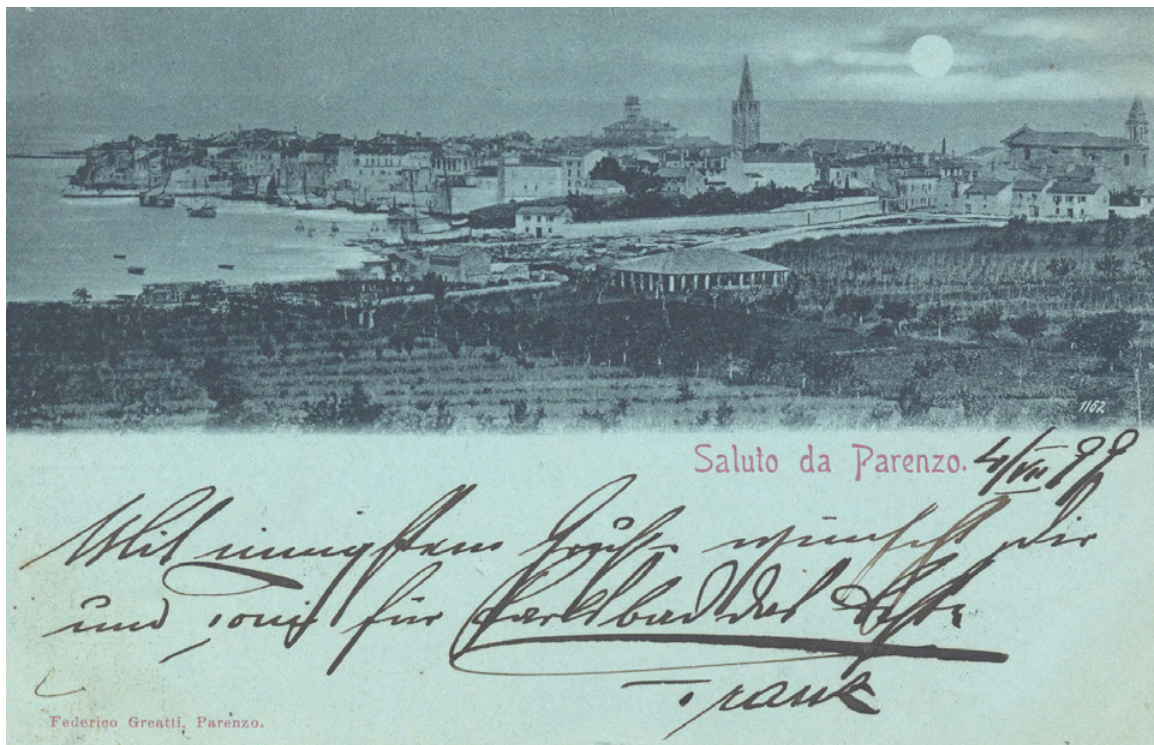 1162
Saluto da Parenzo. 4/VII 99
Mit innigstem Gruß wünscht dir
und für Karlsbad das Beste
Franz
Federico Greatti, Parenzo.